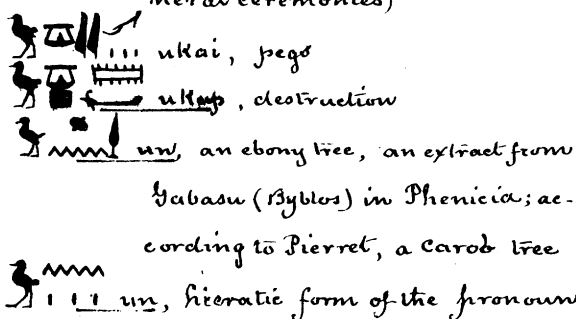 ceremonies)
ukai, pegs
, destruction
un, an ebony tree, an extract from
Gabasu (Byblos) in Phenicia; ac-
cording to Pierret, a Carob tree
un, hieratic form of the pronoun